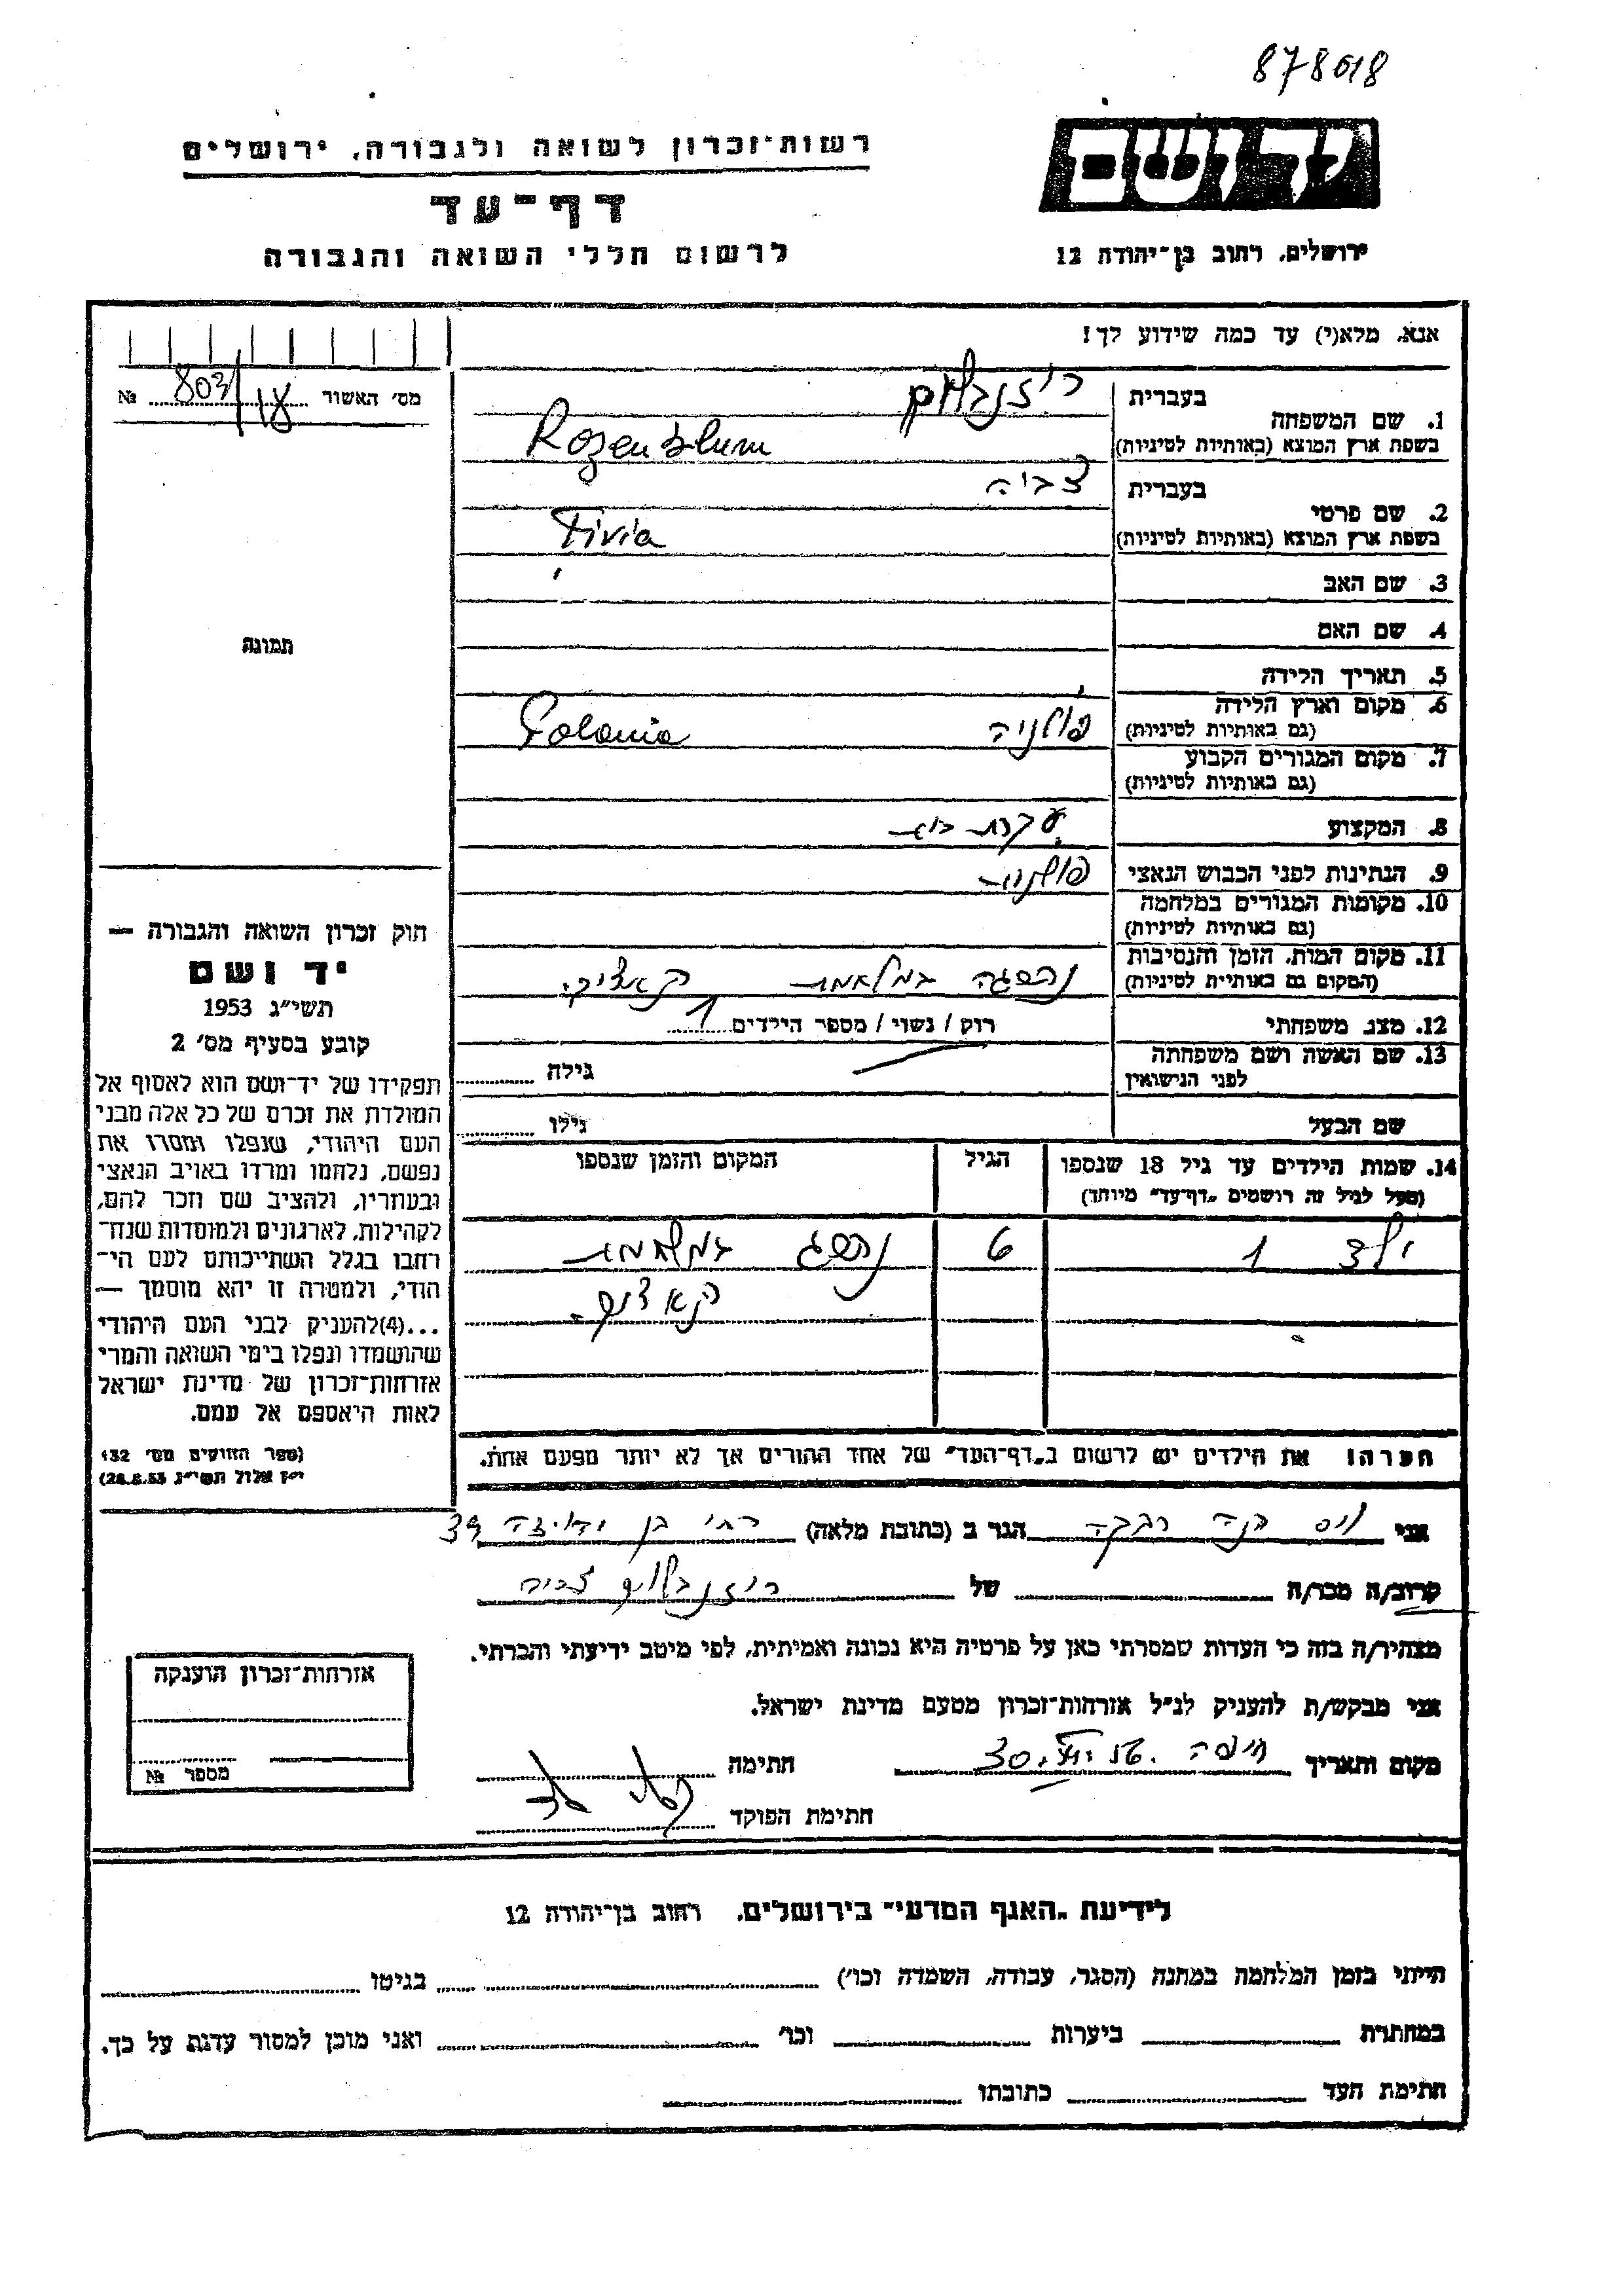 878018
יד ושם
רשות־זכרון לשואה ולגבורה, ירושלים
דף־עד
לרשום חללי השואה והגבורה
ירושלים, רחוב בן־יהודה 12
אנא, מלא(י) עד כמה שידוע לך!
מס' האשור 803/18 №
1. שם המשפחה
בעברית רוזנבלום
בשפת ארץ המוצא (באותיות לטיניות) Rozenblum
2. שם פרטי
בעברית צביה
בשפת ארץ המוצא (באותיות לטיניות) Tivia
3. שם האב
4. שם האם
5. תאריך הלידה
6. מקום וארץ הלידה
(גם באותיות לטיניות) פולניה Polania
7. מקום המגורים הקבוע
(גם באותיות לטיניות)
8. המקצוע עקרת בית
9. הנתינות לפני הכבוש הנאצי פולנית
10. מקומות המגורים במלחמה
(גם באותיות לטיניות)
11. מקום המות, הזמן והנסיבות
(המקום גם באותיית לטיניות) נהרגה במלחמת
12. מצב משפחתי רוק / נשוי / מספר הילדים 1
13. שם האשה ושם משפחתה
לפני הנישואין גילה
שם הבעל גילו
14. שמות הילדים עד גיל 18 שנספו הגיל המקום והזמן שנספו
(מעל לגיל זה רושמים „דף־עד” מיוחד)
ילד 1 6 נהרג במלחמת
הערה! את הילדים יש לרשום ב„דף־העד” של אחד ההורים אך לא יותר מפעם אחת.
תמונה
חוק זכרון השואה והגבורה —
יד ושם
תשי״ג 1953
קובע בסעיף מס' 2
תפקידו של יד־ושם הוא לאסוף אל
המולדת את זכרם של כל אלה מבני
העם היהודי, שנפלו ומסרו את
נפשם, נלחמו ומרדו באויב הנאצי
ובעוזריו, ולהציב שם וזכר להם,
לקהילות, לארגונים ולמוסדות שנח־
רחבו בגלל השתייכותם לעם הי־
הודי, ולמטרה זו יהא מוסמך —
...(4)להעניק לבני העם היהודי
שהושמדו ונפלו בימי השואה והמרי
אזרחות־זכרון של מדינת ישראל
לאות היאספם אל עמם.
(ספר החוקים מס' 132
י״ז אלול תשי״ג 28.8.53)
אני רבקה הגר ב (כתובת מלאה) 39
קרוב/ה מכר/ה של רוזנבלום צביה
מצהיר/ה בזה כי העדות שמסרתי כאן על פרטיה היא נכונה ואמיתית, לפי מיטב ידיעתי והכרתי.
אני מבקש/ת להעניק לנ״ל אזרחות־זכרון מטעם מדינת ישראל.
מקום ותאריך חיפה 30 חתימה
חתימת הפוקד
אזרחות־זכרון הוענקה
מספר №
לידיעת „האגף המדעי” בירושלים, רחוב בן־יהודה 12
הייתי בזמן המלחמה במחנה (הסגר, עבודה, השמדה וכו') בגיטו
במחתרת ביערות וכו' ואני מוכן למסור עדות על כך.
חתימת העד כתובתו